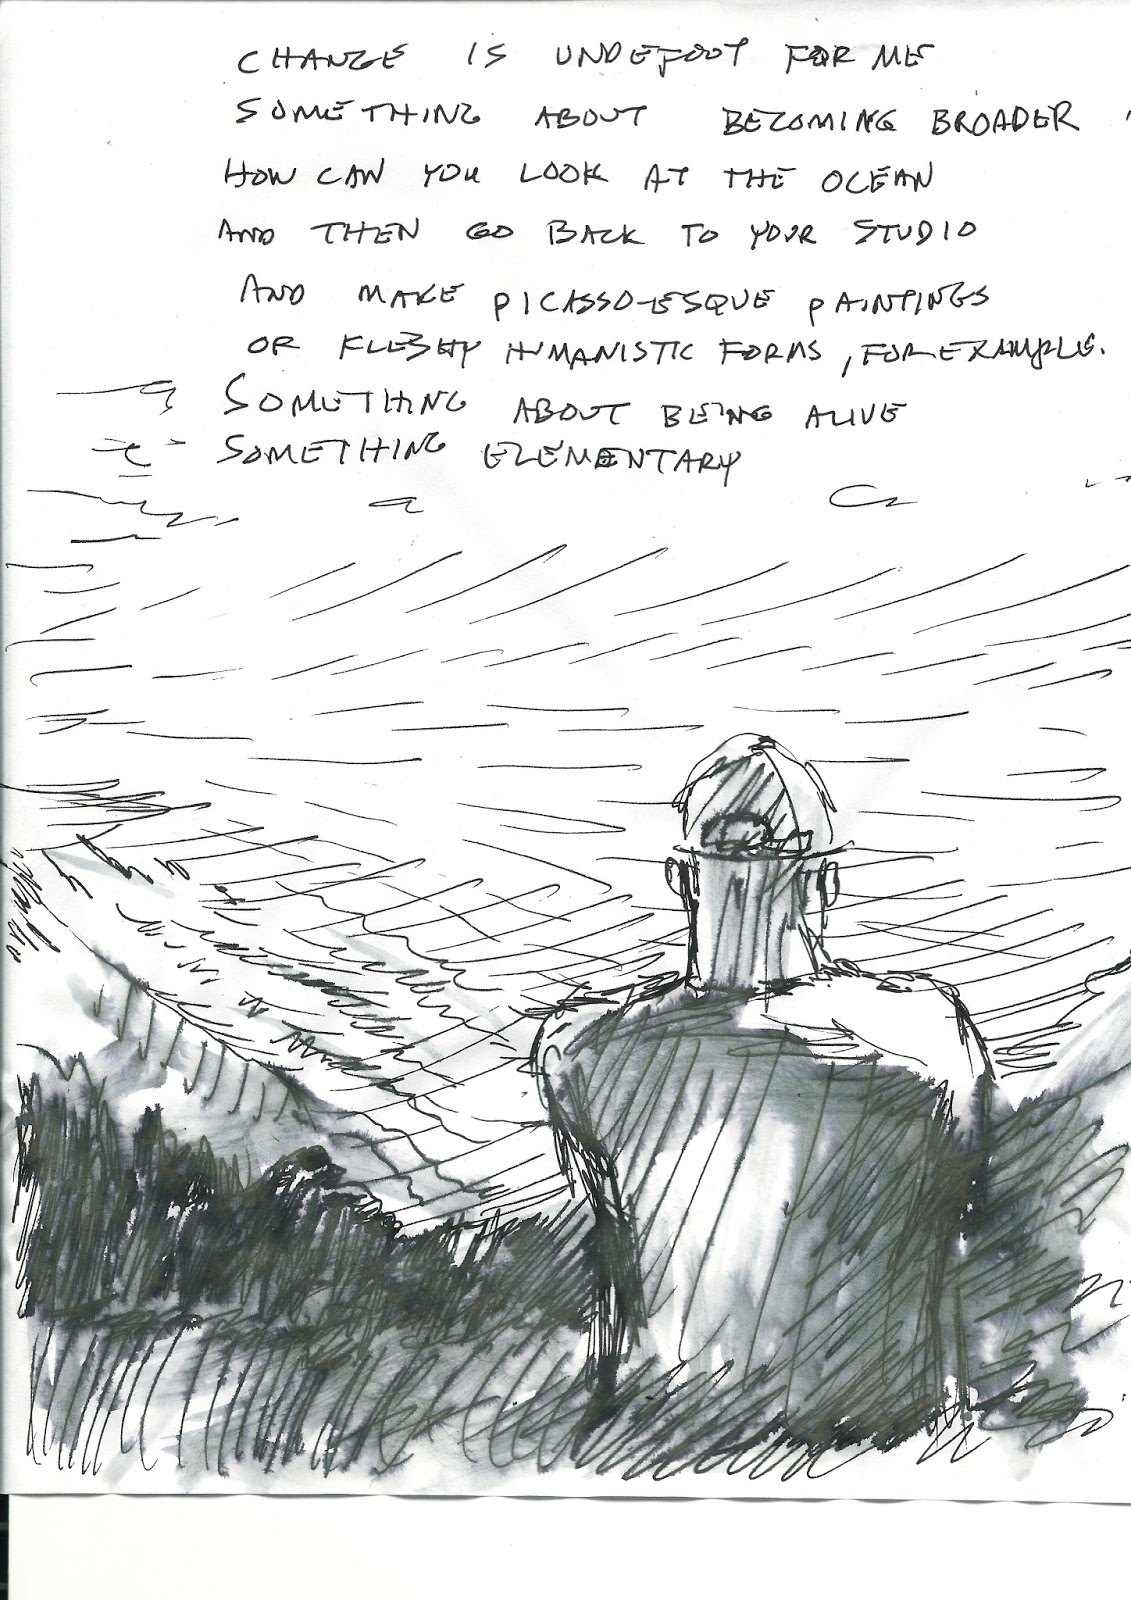 CHANGE IS UNDEFOOT FOR ME
SOMETHING ABOUT BECOMING BROADER
HOW CAN YOU LOOK AT THE OCEAN
AND THEN GO BACK TO YOUR STUDIO
AND MAKE PICASSO-ESQUE PAINTINGS
OR FLESHY HUMANISTIC FORMS, FOR EXAMPLE.
SOMETHING ABOUT BEING ALIVE
SOMETHING ELEMENTARY